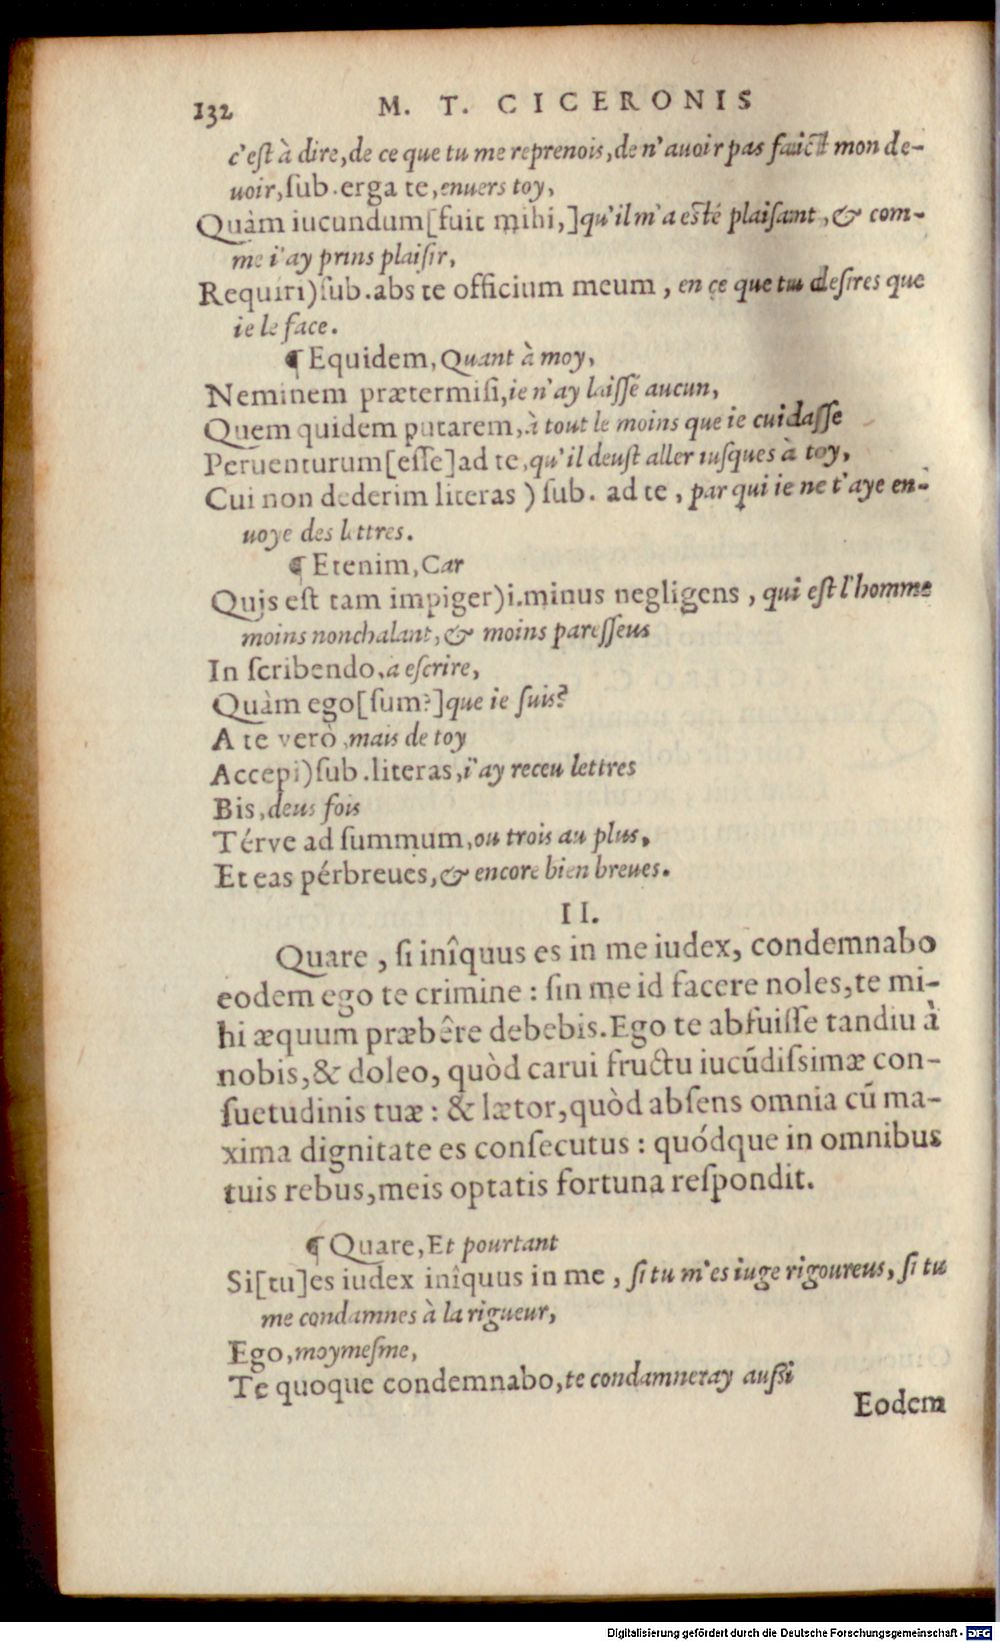 132 M. T. CICERONIS
c'eſt à dire, de ce que tu me reprenois, de n'auoir pas faict mon de-
uoir, ſub. erga te, enuers toy,
Quàm iucundum [fuit mihi,] qu'il m'a eſté plaiſant, & com-
me i'ay prins plaiſir,
Requiri) ſub. abs te officium meum, en ce que tu deſires que
ie le face.
¶ Equidem, Quant à moy,
Neminem prætermiſi, ie n'ay laiſſé aucun,
Quem quidem putarem, à tout le moins que ie cuidaſſe
Peruenturum [eſſe] ad te, qu'il deuſt aller iuſques à toy,
Cui non dederim literas) ſub. ad te, par qui ie ne t'aye en-
uoye des lettres.
¶ Etenim, Car
Quis eſt tam impiger) i. minus negligens, qui eſt l'homme
moins nonchalant, & moins pareſſeus
In ſcribendo, a eſcrire,
Quàm ego [ſum?] que ie ſuis?
A te verò, mais de toy
Accepi) ſub. literas, i'ay receu lettres
Bis, deus fois
Térve ad ſummum, ou trois au plus,
Et eas pérbreues, & encore bien breues.
II.
Quare, ſi inîquus es in me iudex, condemnabo
eodem ego te crimine: ſin me id facere noles, te mi-
hi æquum præbêre debebis. Ego te abfuiſſe tandiu à
nobis, & doleo, quòd carui fructu iucũdiſsimæ con-
ſuetudinis tuæ: & lætor, quòd abſens omnia cũ ma-
xima dignitate es conſecutus: quódque in omnibus
tuis rebus, meis optatis fortuna reſpondit.
¶ Quare, Et pourtant
Si [tu] es iudex inîquus in me, ſi tu m'es iuge rigoureus, ſi tu
me condamnes à la rigueur,
Ego, moymeſme,
Te quoque condemnabo, te condamneray auſſi
Eodem
Digitalisierung gefördert durch die Deutsche Forschungsgemeinschaft - DFG